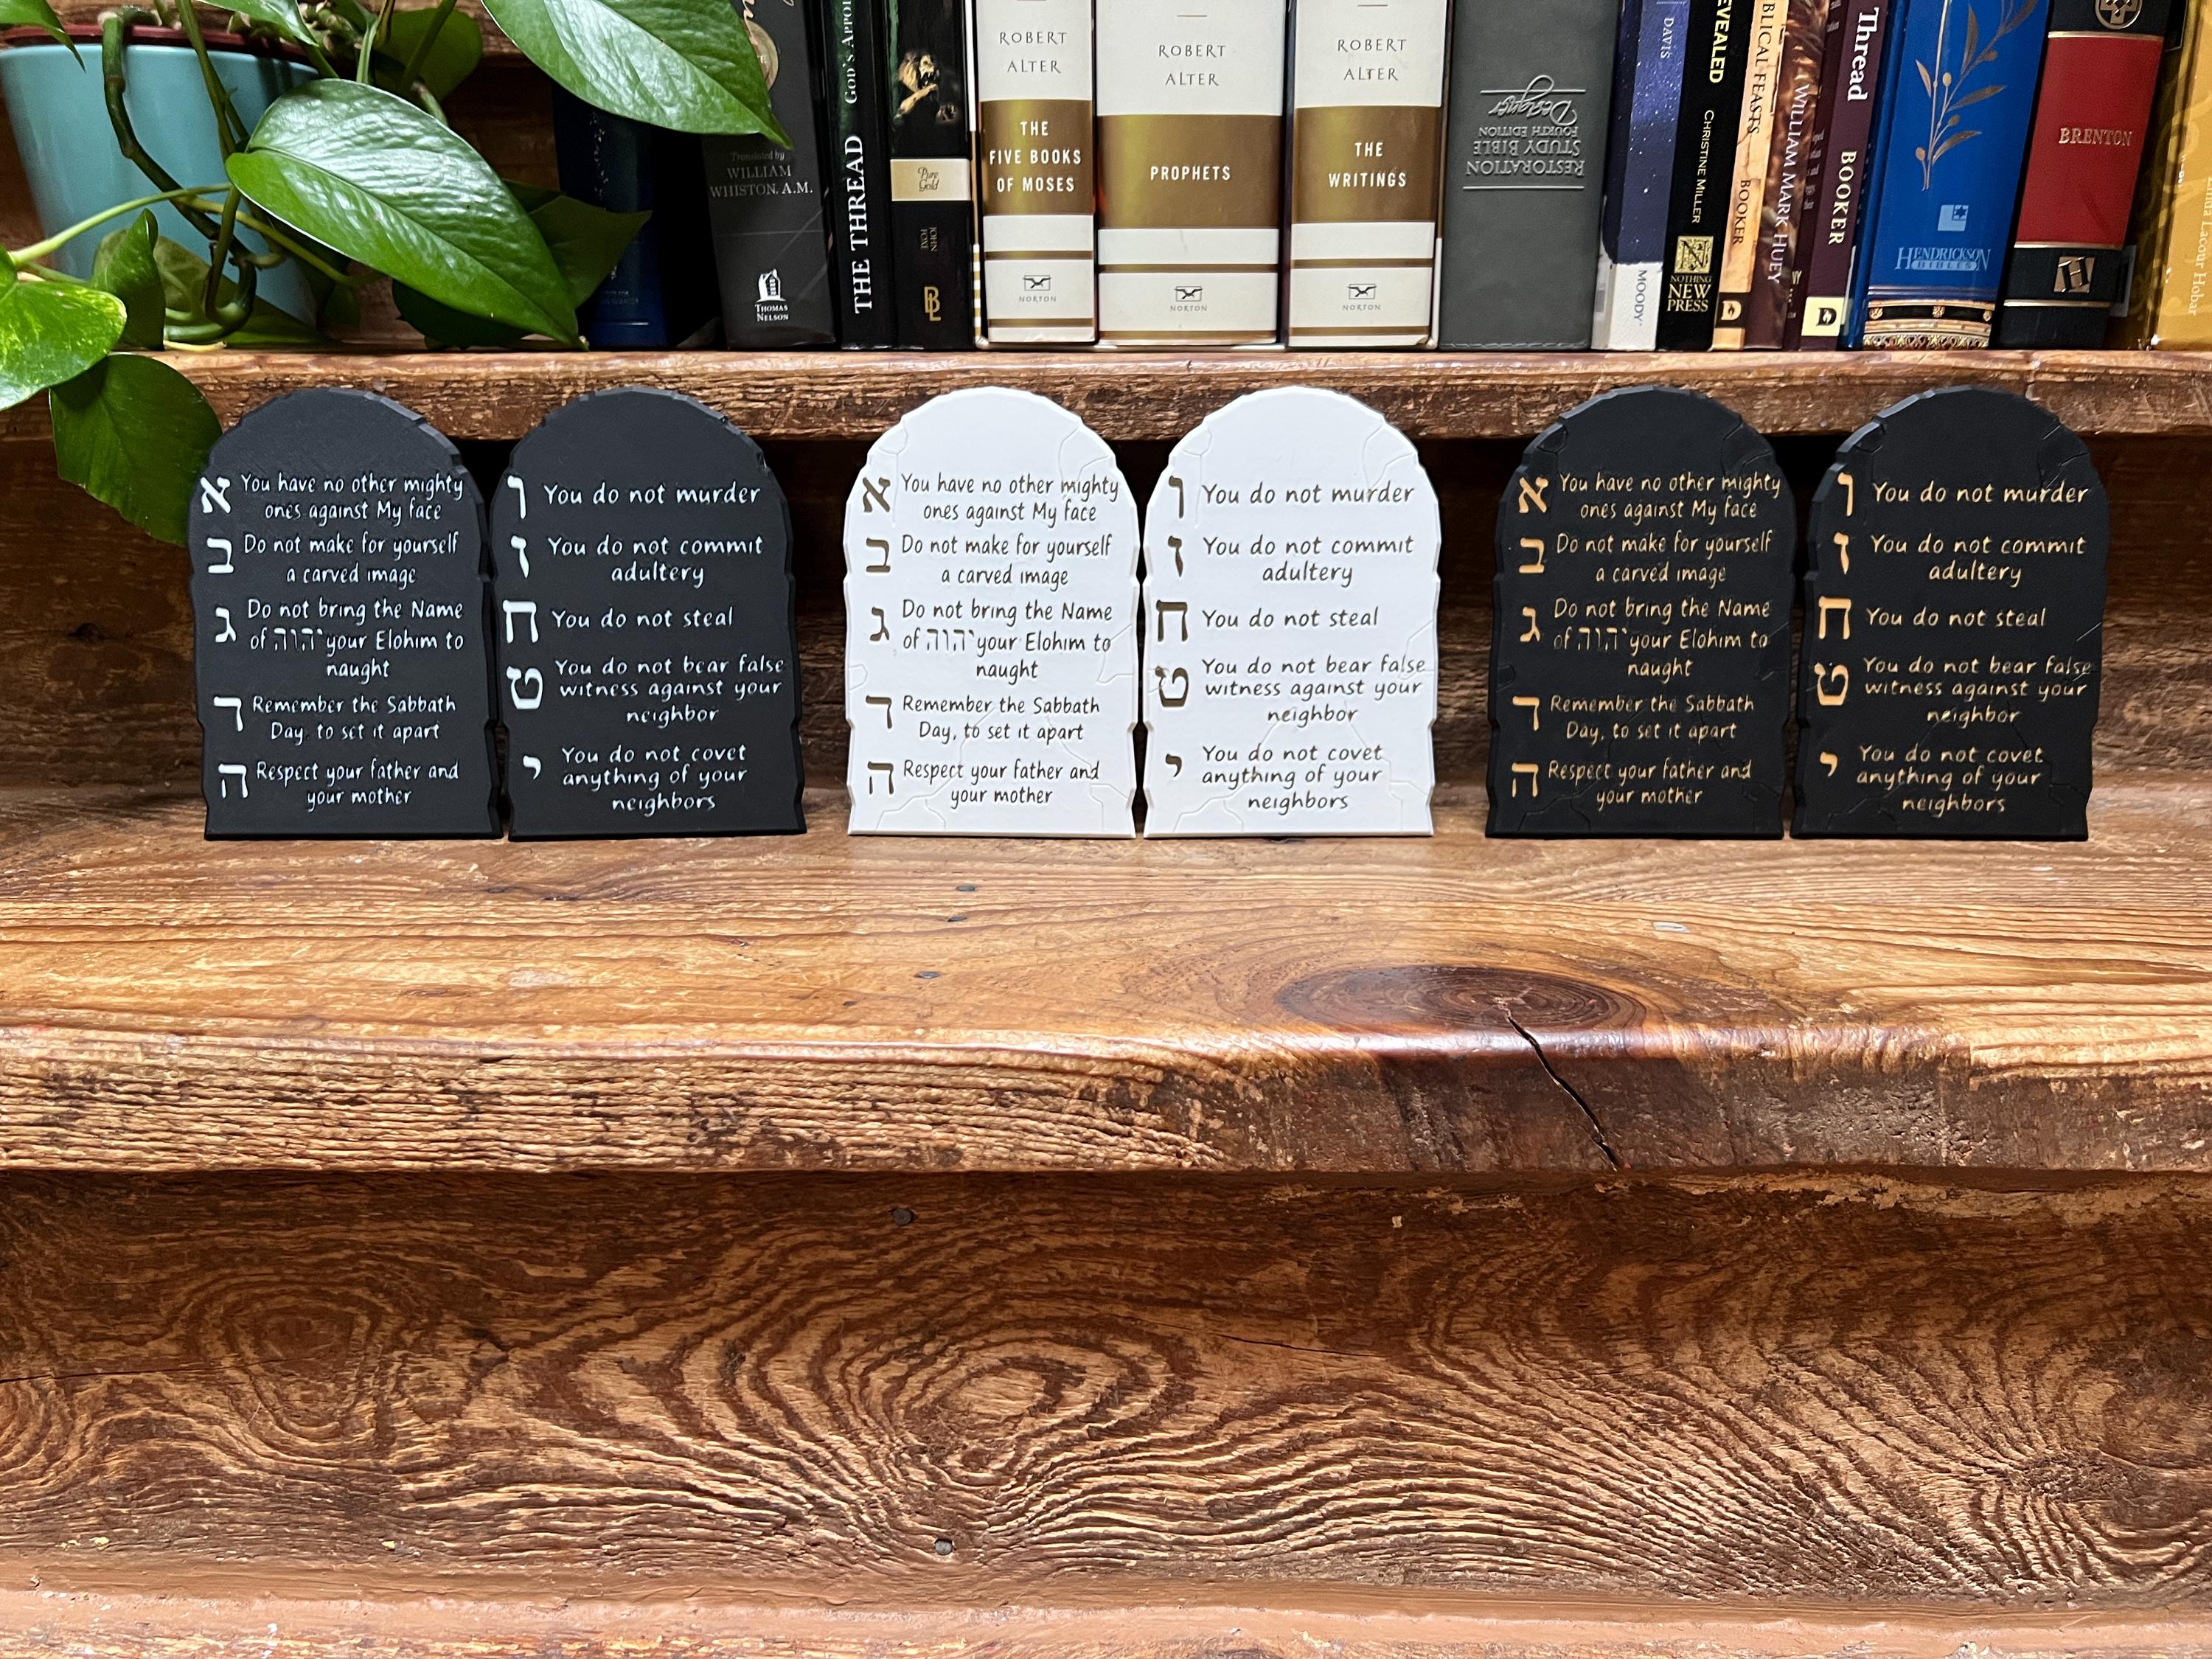 Translated by
WILLIAM
WHISTON, A.M.
THOMAS
NELSON
THE THREAD
Pure
Gold
JOHN
FOXE
ROBERT
ALTER
THE
FIVE BOOKS
OF MOSES
NORTON
ROBERT
ALTER
PROPHETS
NORTON
ROBERT
ALTER
THE
WRITINGS
NORTON
RESTORATION
STUDY BIBLE
FOURTH EDITION
DAVIS
MOODY
CHRISTINE MILLER
NOTHING
NEW
PRESS
FEASTS
BOOKER
WILLIAM MARK HUEY
Thread
BOOKER
HENDRICKSON
BIBLES
BRENTON
H
א You have no other mighty
ones against My face
ב Do not make for yourself
a carved image
ג Do not bring the Name
of יהוה your Elohim to
naught
ד Remember the Sabbath
Day, to set it apart
ה Respect your father and
your mother
ו You do not murder
ז You do not commit
adultery
ח You do not steal
ט You do not bear false
witness against your
neighbor
י You do not covet
anything of your
neighbors
א You have no other mighty
ones against My face
ב Do not make for yourself
a carved image
ג Do not bring the Name
of יהוה your Elohim to
naught
ד Remember the Sabbath
Day, to set it apart
ה Respect your father and
your mother
ו You do not murder
ז You do not commit
adultery
ח You do not steal
ט You do not bear false
witness against your
neighbor
י You do not covet
anything of your
neighbors
א You have no other mighty
ones against My face
ב Do not make for yourself
a carved image
ג Do not bring the Name
of יהוה your Elohim to
naught
ד Remember the Sabbath
Day, to set it apart
ה Respect your father and
your mother
ו You do not murder
ז You do not commit
adultery
ח You do not steal
ט You do not bear false
witness against your
neighbor
י You do not covet
anything of your
neighbors